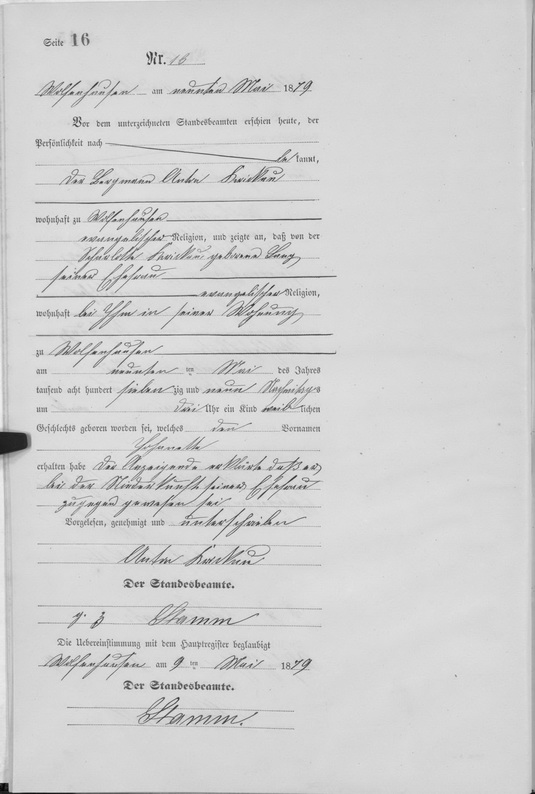 Seite 16
Nr. 16
Wolfenhausen am neunten Mai 1879
Vor dem unterzeichneten Standesbeamten erschien heute, der
Persönlichkeit nach
be kannt,
der Bergmann Anton
wohnhaft zu Wolfenhausen
evangelischer Religion, und zeigte an, daß von der
Scharlotte geborene
seiner Ehefrau
evangelischer Religion,
wohnhaft bei Ihm in seiner Wohnung
zu Wolfenhausen
am neunten ten Mai des Jahres
tausend acht hundert sieben zig und neun Nachmittags
um drei Uhr ein Kind weib lichen
Geschlechts geboren worden sei, welches den Vornamen
Johanette
erhalten habe Der Anzeigende erklärte daß er
bei der Niederkunft seiner Ehefrau
zugegen gewesen sei
Vorgelesen, genehmigt und unterschrieben
Anton
Der Standesbeamte.
Stamm
Die Uebereinstimmung mit dem Hauptregister beglaubigt
Wolfenhausen am 9 ten Mai 1879
Der Standesbeamte.
Stamm.